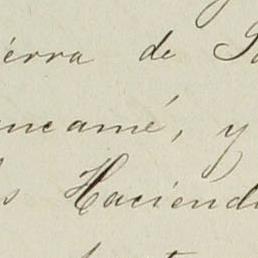 ierra de
uncamé, y
s Haciend